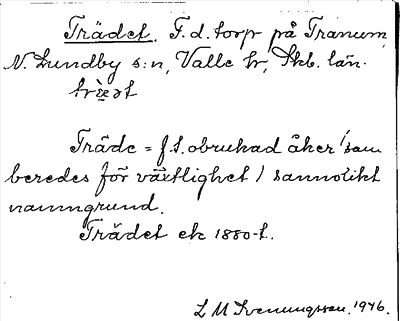 Trädet. F.d. torp på Tranum,
N. Lundby s:n, Valle hd, Skb. län.
Träde = f.d. obrukad åker (som
beredes för växtlighet) sannolikt
namngrund.
Trädet ek 1880-t.
L M Svenungsson. 1946.